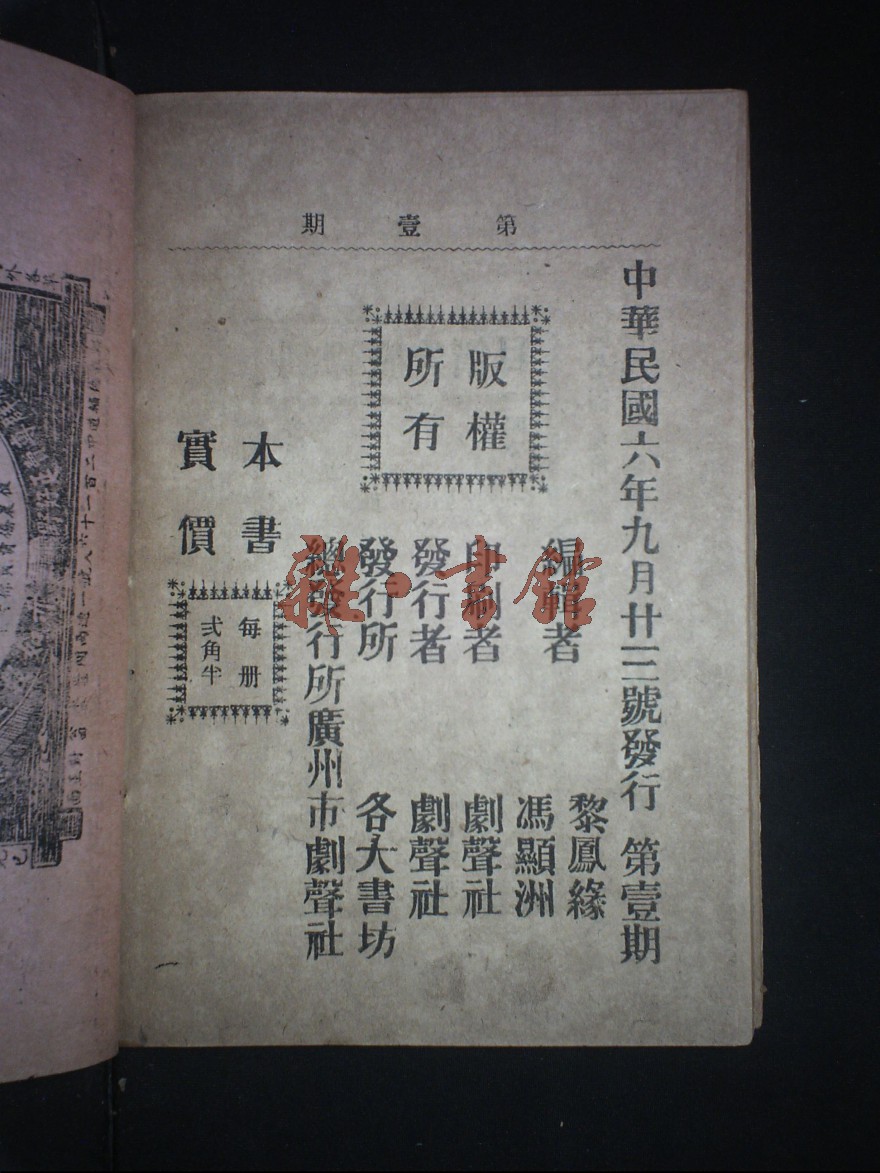 第壹期
中華民國六年九月廿三號發行 第壹期
版權
所有
編輯者 黎鳳緣
馮顯洲
印刷者 劇聲社
發行者 劇聲社
發行所 各大書坊
總發行所廣州市劇聲社
本書
實價
每册
弍角半
雜·書館